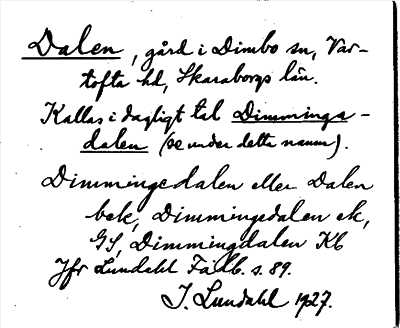 Dalen, gård i Dimbo sn, Var-
tofta hd, Skaraborgs län.
Kallas i dagligt tal Dimmings-
dalen (se under detta namn).
Dimmingedalen eller Dalen
bek, Dimmingedalen ek,
GS, Dimmingdalen Kb
Jfr Lundahl Falb. s. 89.
I. Lundahl 1927.